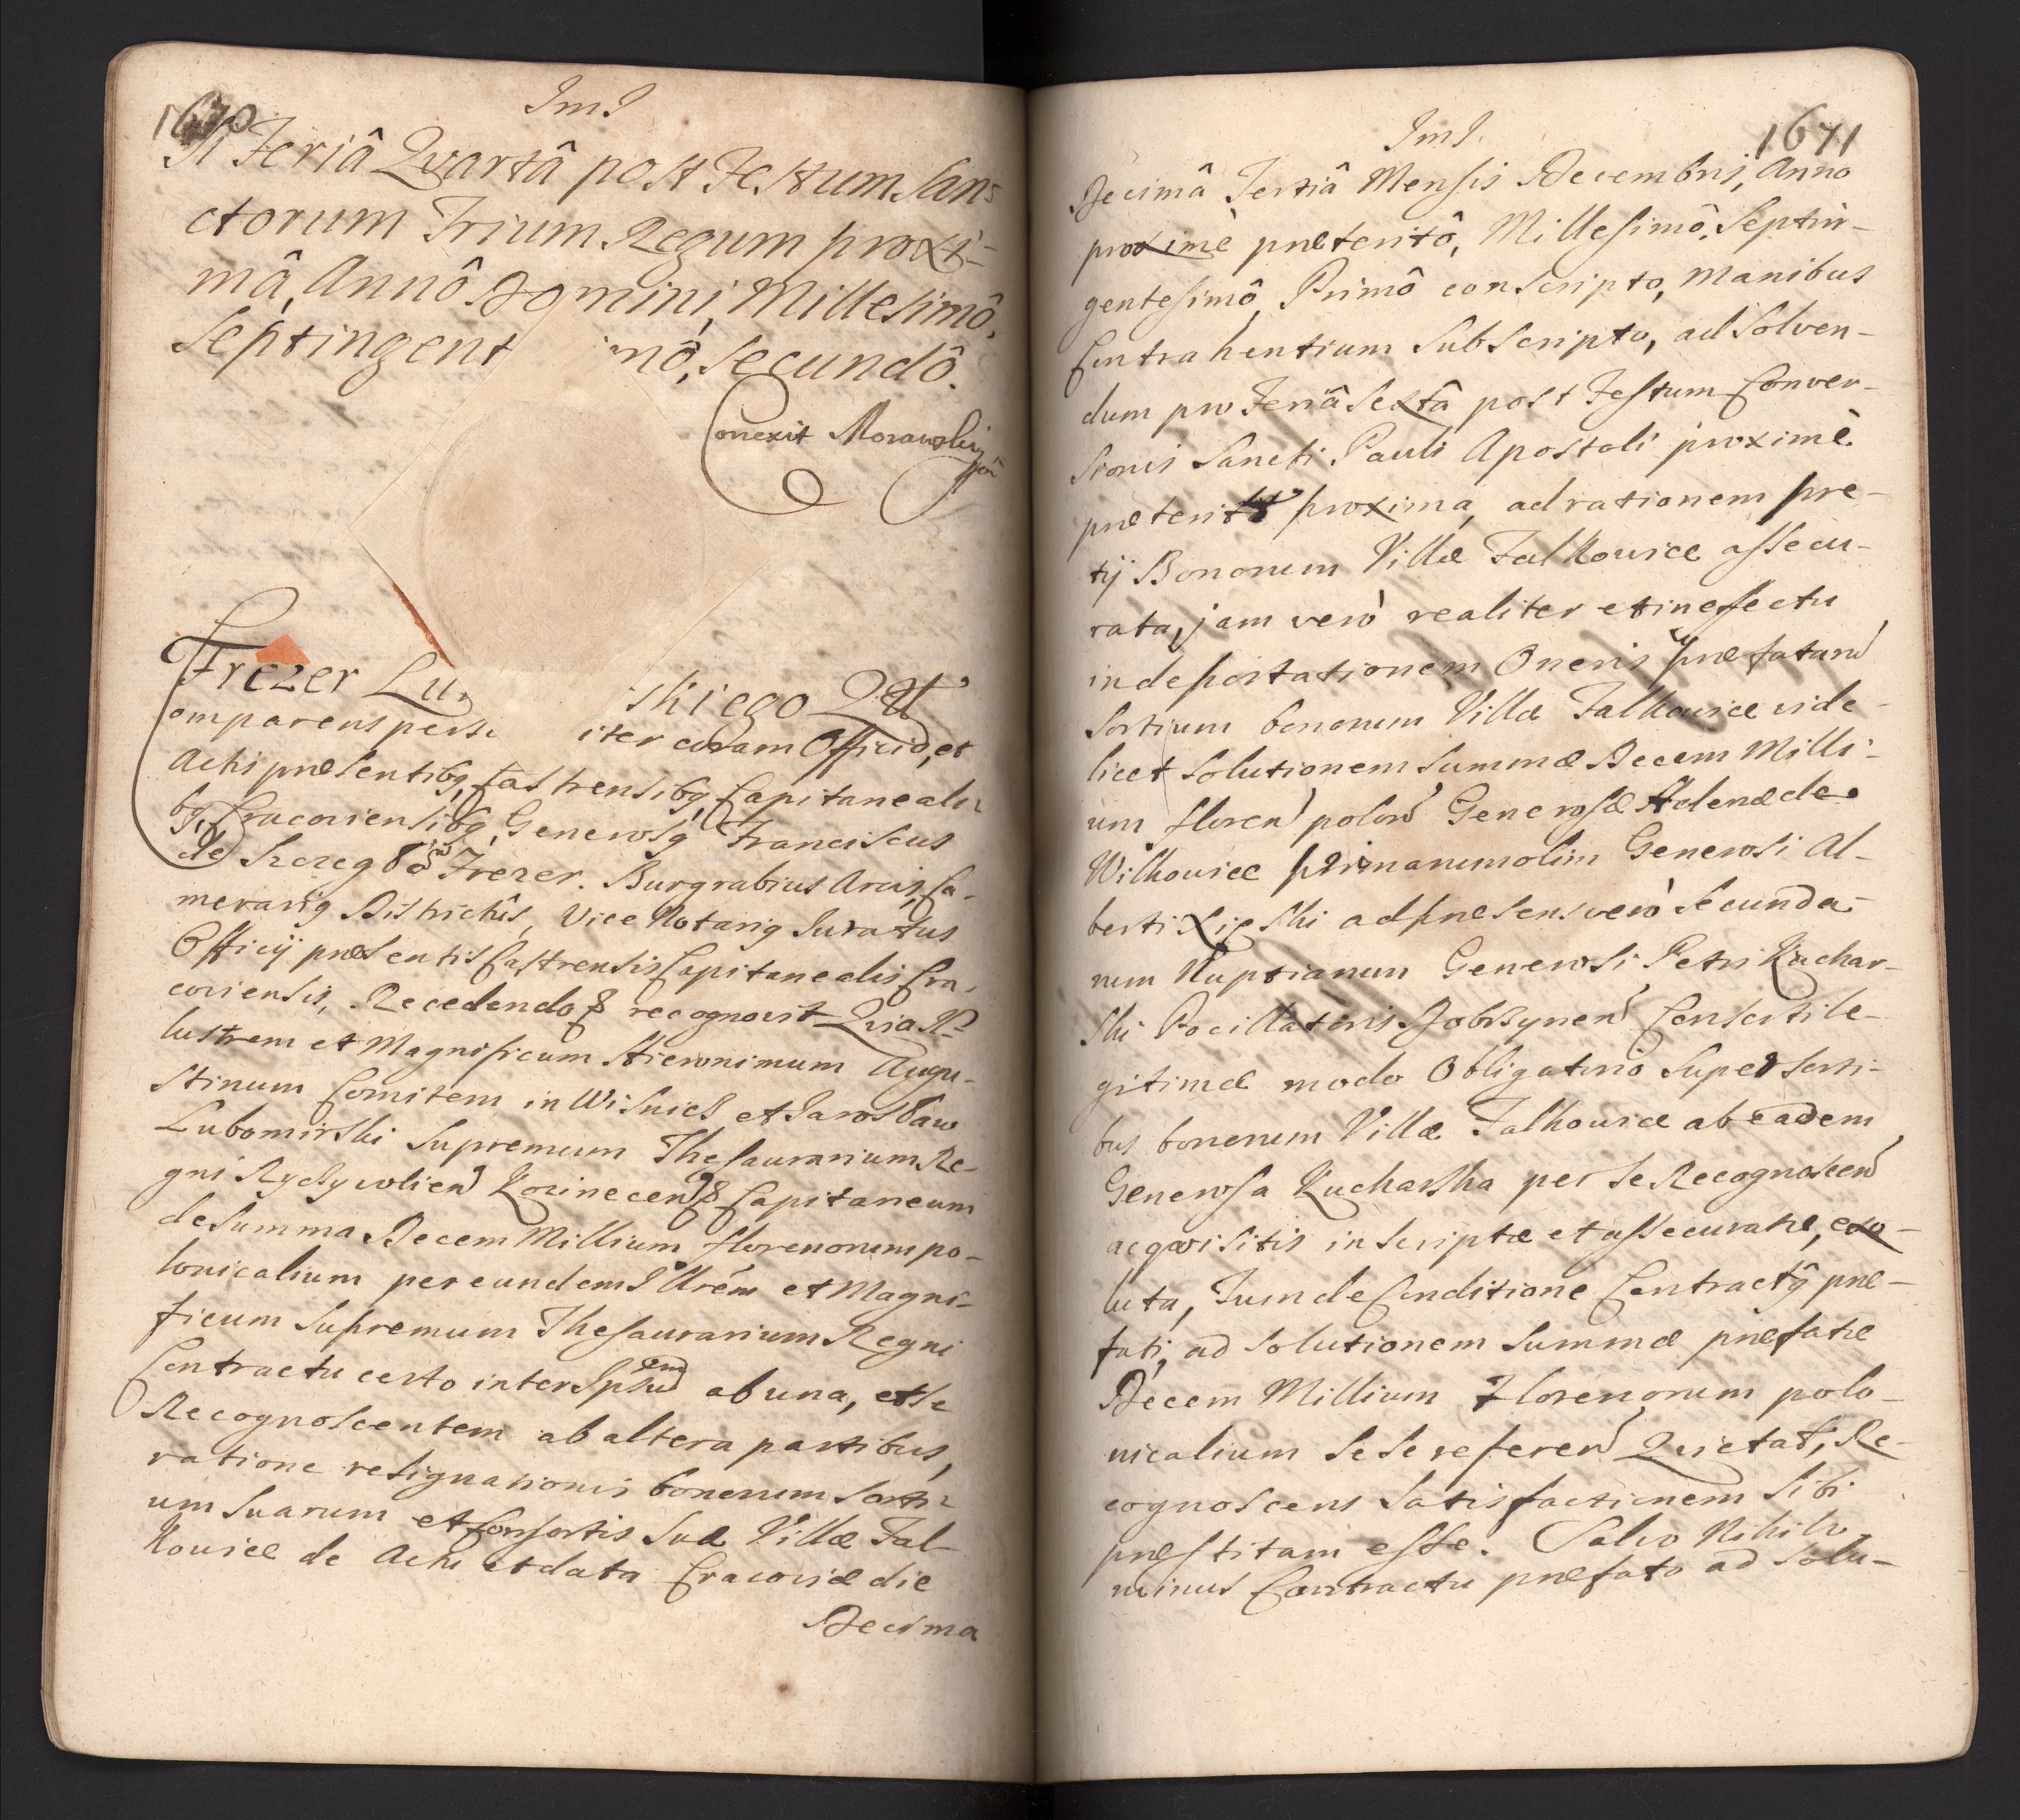 1670
ImI
Feriâ Qvartâ post Festum San=
ctorum Trium Regum proxi=
mâ, Annô Domini, Millesimô,
Septingent mô, Secundô.
Conexit Morawski
Frezer Lu skiego Qtt
Comparens pers iter coram Officio, et
Actis præsentibg, Castrensibg Capitaneali=
bg, Cracoviensibg, Generosg Franciscus
de Frezer. Burgrabius Arcis, Ca-
merarig Districtûs, Vice Notarig Juratus
Officij præsentis Castrensis Capitanealis Cra-
coviensis, Recedendo & recognovit Qvia Il-
lustrem et Magnificum Hieronimum Augu-
stinum Comitem in Wisnicz et Jarosław
Lubomirski Supremum Thesaurarium Re-
gni Ryczywolien Kozinecen & Capitaneum
de Summa Decem Millium florenorum po-
lonicalium per eundem Illrém et Magni-
ficum Supremum Thesaurarium Regni
Contractu certo inter ab una, et se
Recognoscentem ab altera partibus,
ratione resignationis bonorum Sorti=
um Suarum et Consortis Suæ Villæ Fal-
kovice de Actu et data Cracoviæ die
Decima
ImI.
1671
Decimâ Tertiâ Mensis Decembris, Anno
proximè præteritô, Millesimô, Septin-
gentesimô Primô conscripto, manibus
Contrahentium Subscripto, ad Solven-
dum pro Feriâ Sextâ post Festum Conver-
sionis Sancti Pauli Apostoli proximè
proxima, ad rationem pre-
tij Bonorum Villæ Falkovice assecu-
rata, jam verò realiter et in effectu
in deportationem Oneris præfatarum
Sortium bonorum Villæ Falkovice vide-
licet Solutionem Summæ Decem Milli-
um floren polon Generosæ Helenæ de
Wilkovice primarum olim Generosi Al-
berti Lipski ad præsens verò Secunda-
rum Nuptiarum Generosi Petri Kuchar-
ski Pocillatoris Dobrzynen Consorti le-
gitimæ modo Obligatorio Super Sorti-
bus bonorum Villæ Falkovice ab eadem
Generosa Kucharska per se Recognoscen
acqvisitis inscriptæ et assecuratæ, exo-
luta, Tum de Conditione Contractg præ-
fati, ad Solutionem Summæ præfatæ
Decem Millium Florenorum polo-
nicalium Sese referen Qvietat, Re-
cognoscens Satisfactionem Sibi
præstitam esse. Salvo Nihilo
minus Contractu præfato ad Solu-